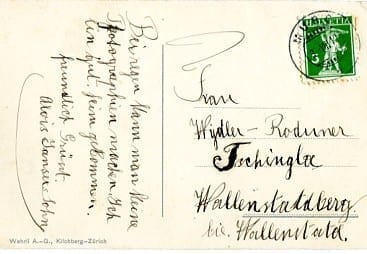 Bei regen kann man keine
Photographien machen Ich
bin gut heim gekommen.
freundlich Grüsst
Alois Sohn
HELVETIA
5
Frau
Wydler-Roduner
Tschingla
Wallenstadtberg
bei Wallenstadt.
Wehrli A.-G., Kilchberg-Zürich